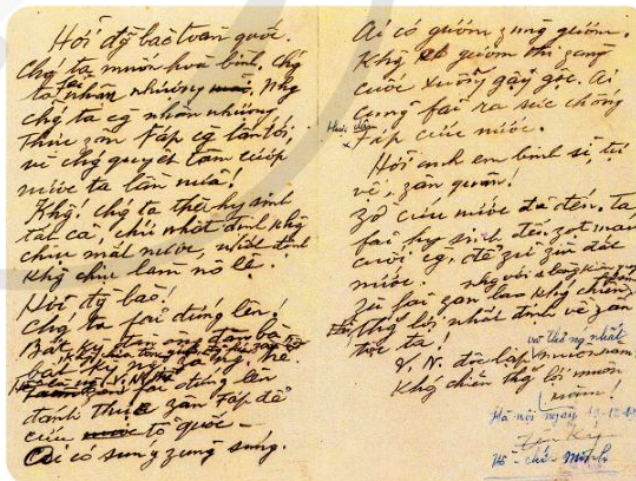 Hỡi đg̃ bào toàn quốc.
Chǵ ta muốn hoà bình, chǵ
ta fải nhân nhượng. Nhg
chǵ ta cg̀ nhân nhượng
thực zân Fáp cg̀ lấn tới,
vì chǵ quyết tâm cướp
nước ta lần nữa!
Khg! chǵ ta thà hy sinh
tất cả, chứ nhất định khg
chịu mất nước, nhất định
khg chịu làm nô lệ.
Hỡi đg̀ bào!
Chǵ ta fải đứng lên!
Bất kỳ đàn ông đàn bà
bất kỳ ng̀ zà ng̀ trẻ.
fải đứng lên
đánh thực zân Fáp để
cứu tổ quốc –
Ai có súng zùng súng.
Ai có gươm zùng gươm.
Khg có gươm thì zùng
cuốc xuổng gậy gộc. Ai
cũng fải ra sức chống
thực zân Fáp cứu nước.
Hỡi anh em binh sĩ, tự
vệ, zân quân!
Zờ cứu nước đã đến. Ta
fải hy sinh đến zọt máu
cuối cg̀, để zữ zìn đất
nước.
Zù fải zan lao khǵ chiến,
thg̃ lợi nhất định về zân
tộc ta!
và thống nhất
V.N. độc lập muôn năm!
Khǵ chiến thg̃ lợi muôn
năm!
Hà nội ngày 19-12-46
Hồ-chí Minh